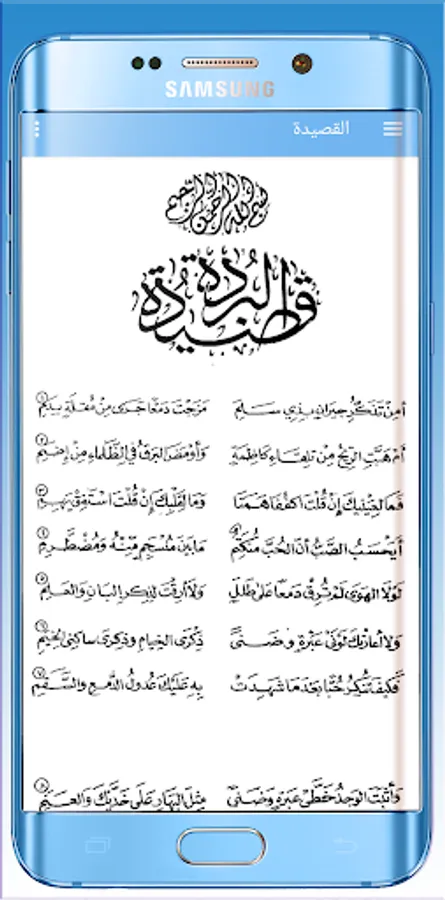 SAMSUNG
القصيدة
بسم الله الرحمن الرحيم
قصيدة البردة
أمِنْ تَذَكُّرِ جِيرَانٍ بِذِي سَلَمِ مَزَجْتَ دَمْعًا جَرَى مِنْ مُقْلَةٍ بِدَمِ ١
أَمْ هَبَّتِ الرِّيحُ مِنْ تِلْقَاءِ كَاظِمَةٍ وَأَوْمَضَ البَرْقُ فِي الظَّلْمَاءِ مِنْ إِضَمِ ٢
فَمَا لِعَيْنَيْكَ إِنْ قُلْتَ اكْفُفَا هَمَتَا وَمَا لِقَلْبِكَ إِنْ قُلْتَ اسْتَفِقْ يَهِمِ ٣
أَيَحْسَبُ الصَّبُّ أَنَّ الحُبَّ مُنْكَتِمٌ مَا بَيْنَ مُنْسَجِمٍ مِنْهُ وَمُضْطَرِمِ ٤
لَوْلَا الهَوَى لَمْ تُرِقْ دَمْعًا عَلَى طَلَلٍ وَلَا أَرِقْتَ لِذِكْرِ البَانِ وَالعَلَمِ ٥
وَلَا أَعَارَتْكَ لَوْنَيْ عَبْرَةٍ وَضَنًى ذِكْرَى الخِيَامِ وَذِكْرَى سَاكِنِي الخِيَمِ ٦
فَكَيْفَ تُنْكِرُ حُبًّا بَعْدَمَا شَهِدَتْ بِهِ عَلَيْكَ عُدُولُ الدَّمْعِ وَالسَّقَمِ ٧
وَأَثْبَتَ الوَجْدُ خَطَّيْ عَبْرَةٍ وَضَنًى مِثْلَ البَهَارِ عَلَى خَدَّيْكَ وَالعَنَمِ ٨